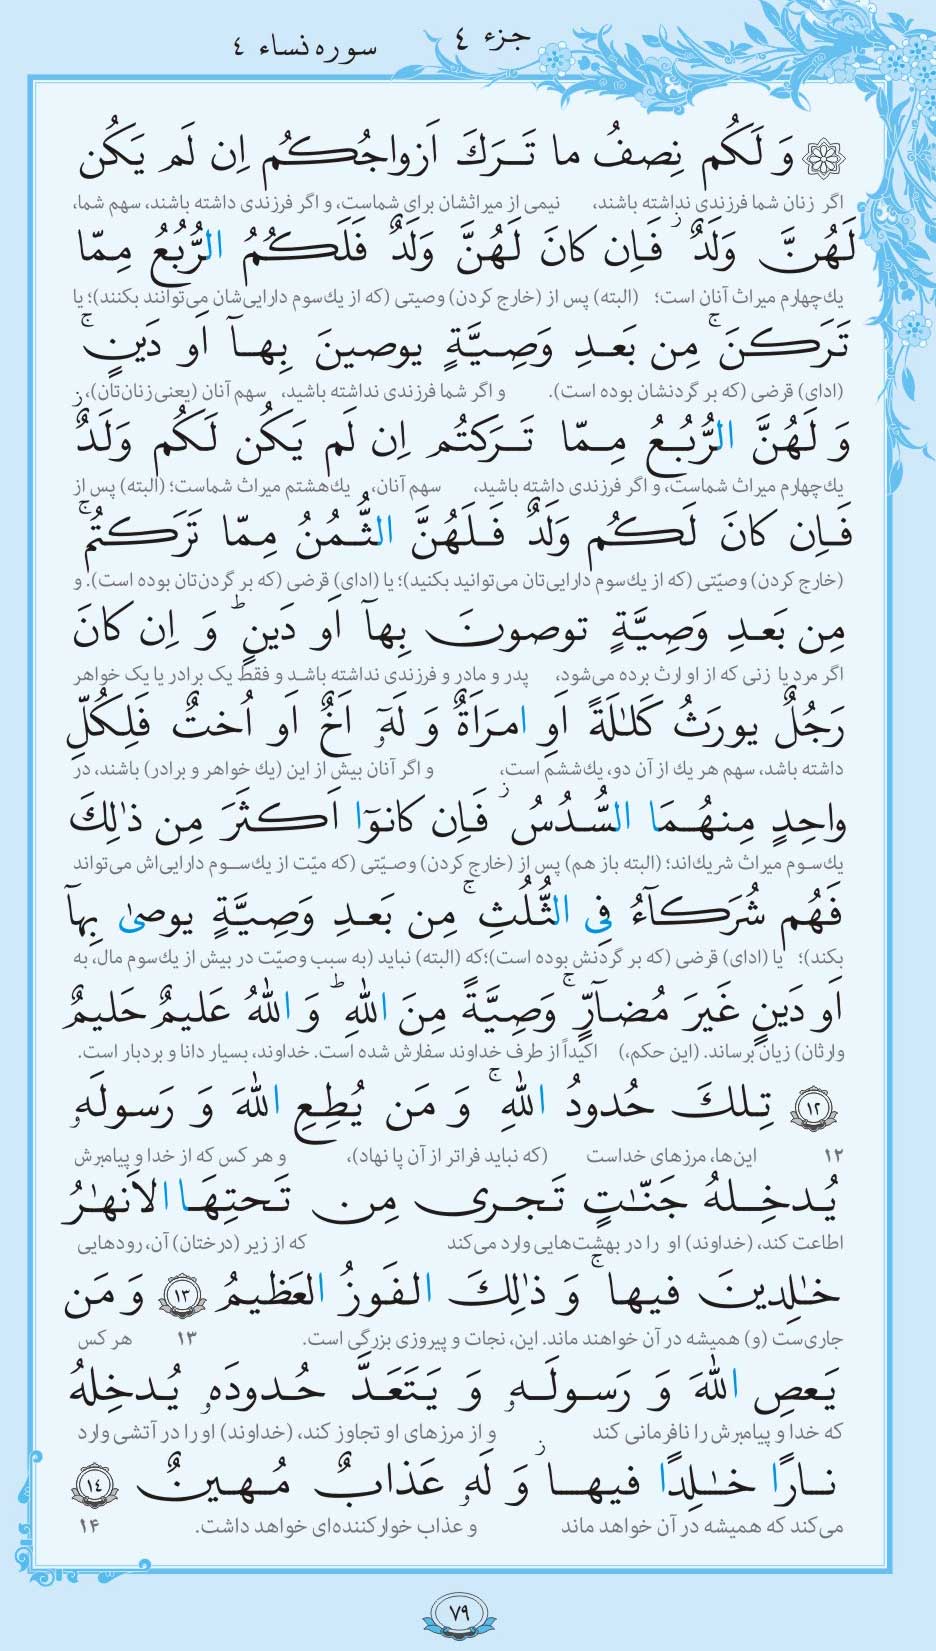 جزء ٤
سوره نساء ٤
وَ لَكُم نِصفُ ما تَرَكَ اَزواجُكُم اِن لَم يَكُن
اگر زنان شما فرزندی نداشته باشند، نیمی از میراثشان برای شماست، و اگر فرزندی داشته باشند، سهم شما،
لَهُنَّ وَلَدٌ ۚ فَاِن كانَ لَهُنَّ وَلَدٌ فَلَكُمُ الرُّبُعُ مِمّا
یک‌چهارم میراث آنان است؛ (البته) پس از (خارج کردن) وصیتی (که از یک‌سوم دارایی‌شان می‌توانند بکنند)؛ یا
تَرَكنَ ۚ مِن بَعدِ وَصِيَّةٍ يوصينَ بِهآ اَو دَينٍ ۚ
(ادای) قرضی (که بر گردنشان بوده است). و اگر شما فرزندی نداشته باشید، سهم آنان (یعنی زنان‌تان)،
وَ لَهُنَّ الرُّبُعُ مِمّا تَرَكتُم اِن لَم يَكُن لَكُم وَلَدٌ ۚ
یک‌چهارم میراث شماست، و اگر فرزندی داشته باشید، سهم آنان، یک‌هشتم میراث شماست؛ (البته) پس از
فَاِن كانَ لَكُم وَلَدٌ فَلَهُنَّ الثُّمُنُ مِمّا تَرَكتُم ۚ
(خارج کردن) وصیّتی (که از یک‌سوم دارایی‌تان می‌توانید بکنید)؛ یا (ادای) قرضی (که بر گردن‌تان بوده است). و
مِن بَعدِ وَصِيَّةٍ توصونَ بِهآ اَو دَينٍ ۗ وَ اِن كانَ
اگر مرد یا زنی که از او ارث برده می‌شود، پدر و مادر و فرزندی نداشته باشد و فقط یک برادر یا یک خواهر
رَجُلٌ يورَثُ كَلـٰلَةً اَوِ امرَاَةٌ وَ لَهٓ اَخٌ اَو اُختٌ فَلِكُلِّ
داشته باشد، سهم هر یک از آن دو، یک‌ششم است، و اگر آنان بیش از این (یک خواهر و برادر) باشند، در
واحِدٍ مِنهُمَا السُّدُسُ ۚ فَاِن كانوٓا اَكثَرَ مِن ذٰلِكَ
یک‌سوم میراث شریک‌اند؛ (البته باز هم) پس از (خارج کردن) وصیّتی (که میّت از یک‌سوم دارایی‌اش می‌تواند
فَهُم شُرَكآءُ فِی الثُّلُثِ ۚ مِن بَعدِ وَصِيَّةٍ يوصیٰ بِهآ
بکند)؛ یا (ادای) قرضی (که بر گردنش بوده است)؛که (البته) نباید (به سبب وصیّت در بیش از یک‌سوم مال، به
اَو دَينٍ غَيرَ مُضآرٍّ ۚ وَصِيَّةً مِنَ اللهِ ۗ وَ اللهُ عَليمٌ حَليمٌ
وارثان) زیان برساند. (این حکم،) اکیداً از طرف خداوند سفارش شده است. خداوند، بسیار دانا و بردبار است.
١٢ تِلكَ حُدودُ اللهِ ۚ وَ مَن يُطِعِ اللهَ وَ رَسولَهٗ
۱۲ این‌ها، مرزهای خداست (که نباید فراتر از آن پا نهاد)، و هر کس که از خدا و پیامبرش
يُدخِلهُ جَنّـٰتٍ تَجری مِن تَحتِهَا الاَنهـٰرُ
اطاعت کند، (خداوند) او را در بهشت‌هایی وارد می‌کند که از زیر (درختان) آن، رودهایی
خـٰلِدينَ فيها ۚ وَ ذٰلِكَ الفَوزُ العَظيمُ ١٣ وَ مَن
جاری‌ست (و) همیشه در آن خواهند ماند. این، نجات و پیروزی بزرگی است. ۱۳ هر کس
يَعصِ اللهَ وَ رَسولَهٗ وَ يَتَعَدَّ حُدودَهٗ يُدخِلهُ
که خدا و پیامبرش را نافرمانی کند و از مرزهای او تجاوز کند، (خداوند) او را در آتشی وارد
نارًا خـٰلِدًا فيها ۚ وَ لَهٗ عَذابٌ مُهينٌ ١٤
می‌کند که همیشه در آن خواهد ماند و عذاب خوارکننده‌ای خواهد داشت. ۱۴
٧٩